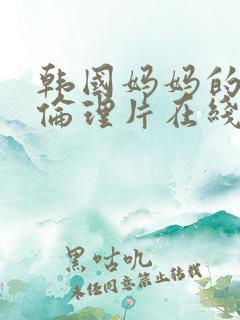 韩国妈妈的
伦理片在线
黑咕叽
未经同意禁止转载